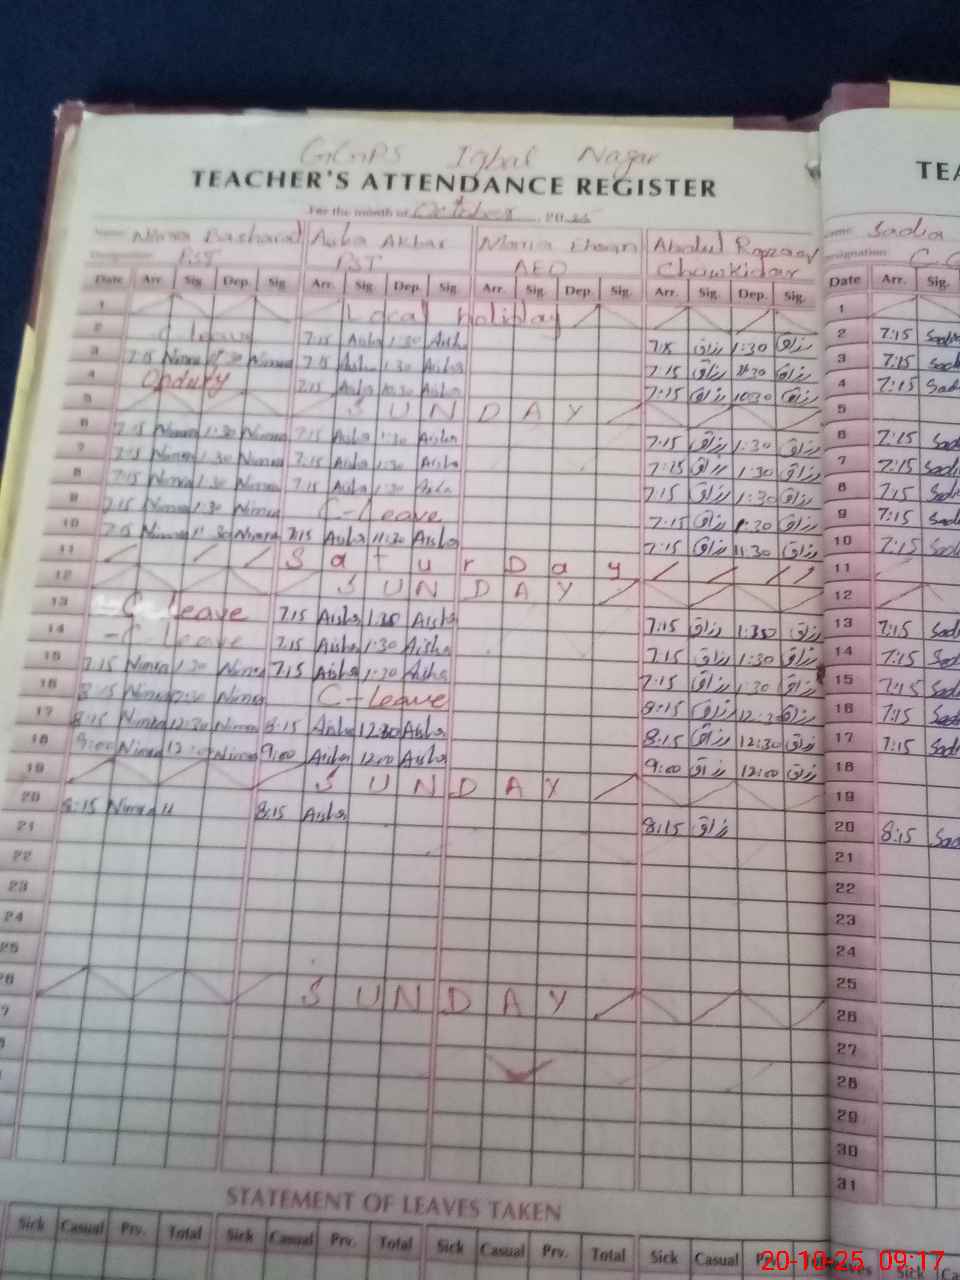 GGPS Iqbal Nagar
TEACHER'S ATTENDANCE REGISTER
For the month of October, 2025
Name Nimra Basharat Aisha Akbar Ehsan Abdul Sadia
Designation PST PST AEO Chowkidar
Date Arr. Sig. Dep. Sig. Arr. Sig. Dep. Sig. Arr. Sig. Dep. Sig. Arr. Sig. Dep. Sig. Date Arr. Sig.
1 Local holiday 1
2 C leave 7:15 Aisha 1:30 Aisha 7:15 رزاق 1:30 رزاق 2 7:15
3 7:15 Nimra Nimra 7:15 Aisha 1:30 Aisha 7:15 رزاق رزاق 3 7:15
4 7:15 Aisha 10:30 Aisha 7:15 رزاق 10:30 رزاق 4 7:15
5 SUNDAY 5
6 7:15 Nimra 1:30 Nimra 7:15 Aisha 1:30 Aisha 7:15 رزاق 1:30 رزاق 6 7:15
7 7:15 Nimra 1:30 Nimra 7:15 Aisha 1:30 Aisha 7:15 رزاق 1:30 رزاق 7 7:15
8 7:15 Nimra 1:30 Nimra 7:15 Aisha 1:30 Aisha 7:15 رزاق 1:30 رزاق 8 7:15
9 7:15 Nimra 1:30 Nimra C-Leave 7:15 رزاق 1:30 رزاق 9 7:15
10 7:15 Nimra Nimra 7:15 Aisha 11:30 Aisha 7:15 رزاق 11:30 رزاق 10 7:15
11 SaturDay 11
12 SUNDAY 12
13 C Leave 7:15 Aisha 1:30 Aisha 7:15 رزاق 1:30 رزاق 13 7:15
14 -C Leave 7:15 Aisha 1:30 Aisha 7:15 رزاق 1:30 رزاق 14 7:15
15 7:15 Nimra 1:30 Nimra 7:15 Aisha 1:30 Aisha 7:15 رزاق 1:30 رزاق 15 7:15
16 8:15 Nimra 12:30 Nimra C-Leave 8:15 رزاق رزاق 16 7:15
17 8:15 Nimra 12:30 Nimra 8:15 Aisha 12:30 Aisha 8:15 رزاق 12:30 رزاق 17 7:15
18 9:00 Nimra Nimra 9:00 Aisha 12:00 Aisha 9:00 رزاق 12:00 رزاق 18
19 SUNDAY 19
20 8:15 Nimra 8:15 Aisha 8:15 رزاق 20 8:15
21 21
22 22
23 23
24 24
25 25
26 SUNDAY 26
27
28
29
30
31
STATEMENT OF LEAVES TAKEN
Sick Casual Prv. Total Sick Casual Prv. Total Sick Casual Prv. Total Sick Casual
20-10-25 09:17